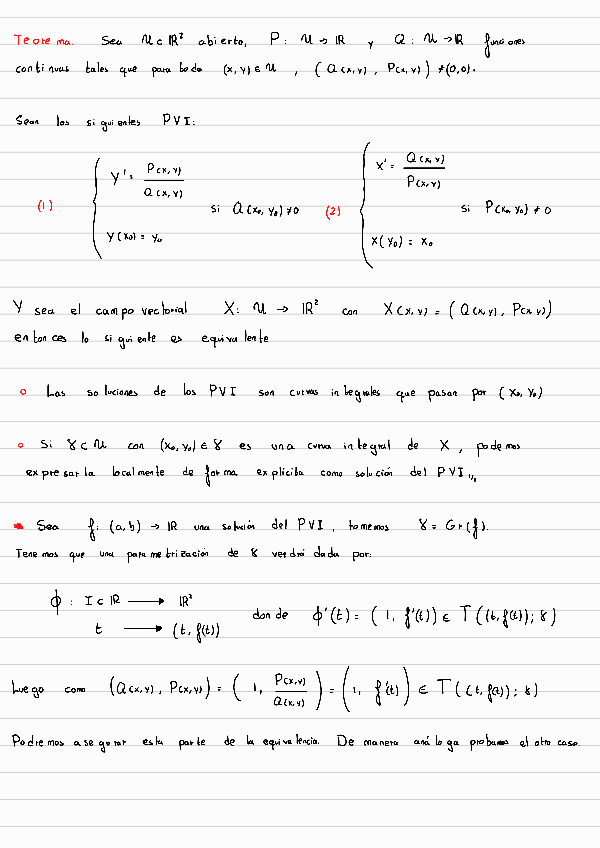 Teorema. Sea U ⊂ ℝ² abierto, P: U → ℝ y Q: U → ℝ funciones
continuas tales que para todo (x,y) ∈ U, (Q(x,y), P(x,y)) ≠ (0,0).
Sean los siguientes PVI:
(1) { y' = P(x,y) / Q(x,y) ; y(x₀) = y₀ si Q(x₀,y₀) ≠ 0 (2) { x' = Q(x,y) / P(x,y) ; x(y₀) = x₀ si P(x₀,y₀) ≠ 0
Y sea el campo vectorial X: U → ℝ² con X(x,y) = (Q(x,y), P(x,y))
entonces lo siguiente es equivalente
o Las soluciones de los PVI son curvas integrales que pasan por (x₀,y₀)
o Si γ ⊂ U con (x₀,y₀) ∈ γ es una curva integral de X, podemos
expresarla localmente de forma explicita como solución del PVI
Sea f: (a,b) → ℝ una solución del PVI, tomemos γ = Gr(f).
Tenemos que una parametrización de γ vendrá dada por:
ϕ : I ⊂ ℝ → ℝ²
t → (t, f(t)) donde ϕ'(t) = (1, f'(t)) ∈ T((t,f(t)); γ)
Luego como (Q(x,y), P(x,y)) = (1, P(x,y) / Q(x,y)) = (1, f'(t)) ∈ T((t,f(t)); γ)
Podremos asegurar esta parte de la equivalencia. De manera análoga probamos el otro caso.